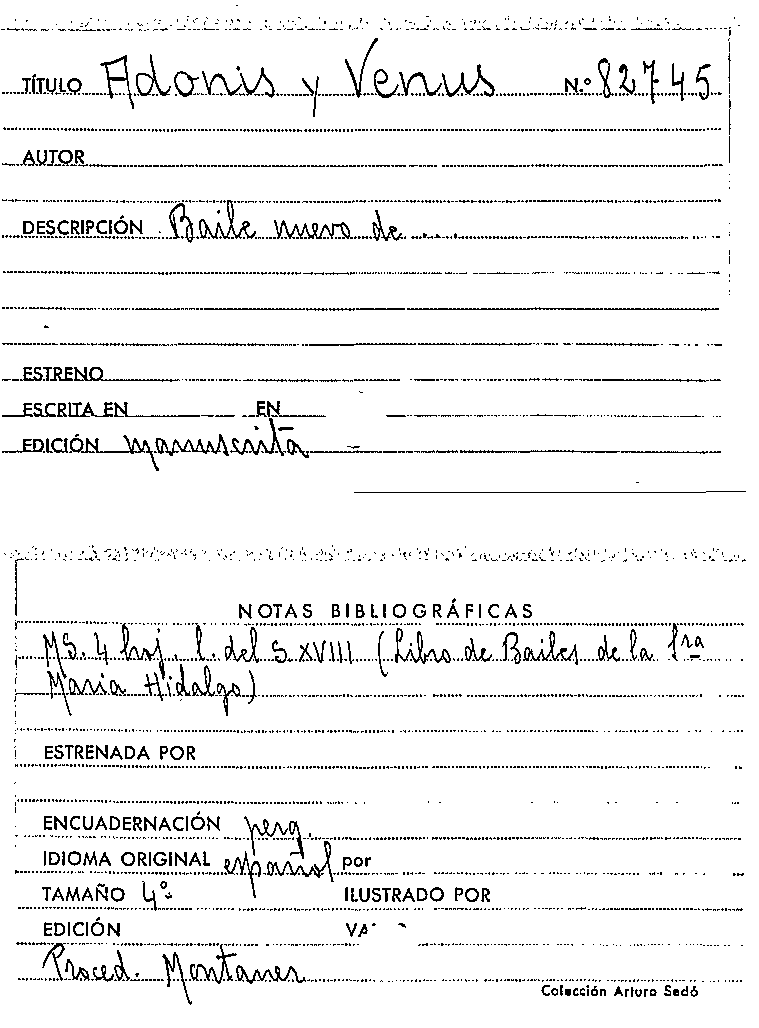 TÍTULO Adonis y Venus N.º 82745
AUTOR
DESCRIPCIÓN Baile nuevo de ....
ESTRENO
ESCRITA EN EN
EDICIÓN manuscrita
NOTAS BIBLIOGRÁFICAS
MS. 4 hoj. l. del S. XVIII (Libro de Bailes de la Sra
Maria Hidalgo)
ESTRENADA POR
ENCUADERNACIÓN perg.
IDIOMA ORIGINAL español por
TAMAÑO 4º ILUSTRADO POR
EDICIÓN
Proced. Montaner
Colección Arturo Sedó